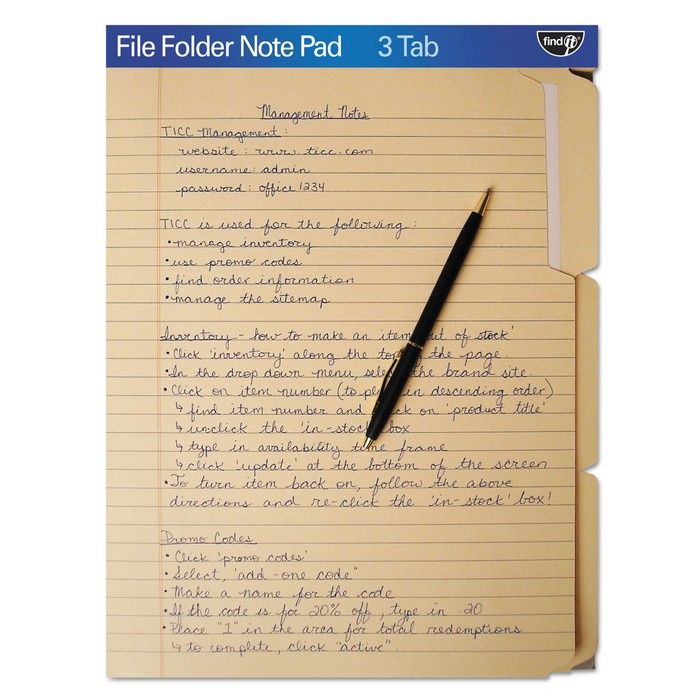 File Folder Note Pad 3 Tab
find it
Management Notes
TICC Management:
website: www.ticc.com
username: admin
password: office1234
TICC is used for the following:
•manage inventory
•use promo codes
•find order information
•manage the sitemap
Inventory - how to make an item out of stock'
•Click 'inventory' along the top of the page.
•In the drop down menu, select the brand site.
•Click on item number (to pl in descending order)
↳ find item number and click on 'product title'
↳ unclick the 'in-stock' box
↳ type in availability time frame
↳ click 'update' at the bottom of the screen
•To turn item back on, follow the above
directions and re-click the 'in-stock' box!
Promo Codes
• Click 'promo codes'
•Select, 'add-one code"
•Make a name for the code
•If the code is for 20% off, type in .20
•Place "1" in the area for total redemptions
↳ to complete, click "active".